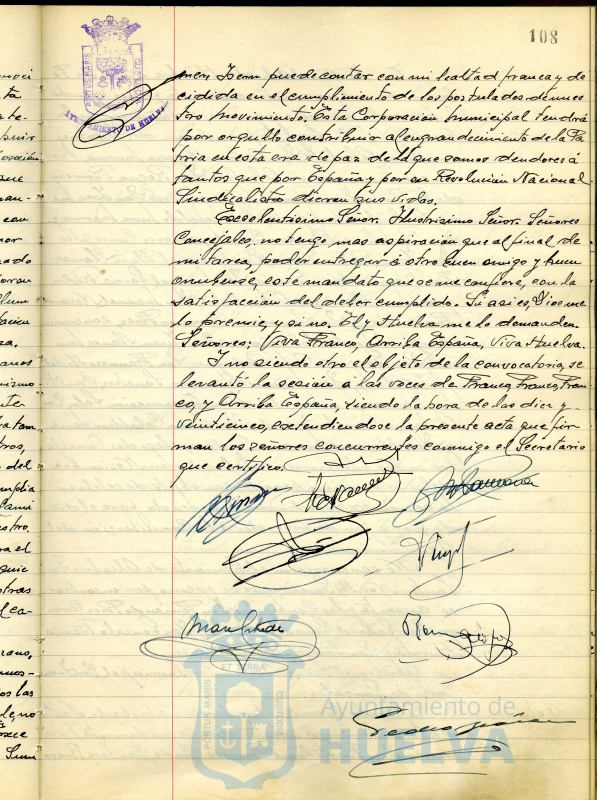 108
PORTUS MARIS ET TERRE CUSTODIA
AYUNTAMIENTO DE HUELVA
men Ibern puede contar con mi lealtad franca y de
cidida en el cumplimiento de los postulados de nues
tro Movimiento. Esta Corporación Municipal tendrá
por orgullo contribuir al engrandecimiento de la Pa
tria en esta era de paz de la que somos deudores á
tantos que por España y por su Revolución Nacional-
Sindicalista dieron sus vidas.
Excelentísimo Señor. Ilustrísimo Señor. Señores
Concejales, no tengo mas aspiración que al final de
mi tarea, poder entregar á otro buen amigo y buen
onubense, este mandato que se me confiere, con la
satisfacción del deber cumplido. Si asi es, Dios me
lo premie, y si no. El y Huelva me lo demanden.
Señores: Viva Franco, Arriba España, Viva Huelva.
Y no siendo otro el objeto de la convocatoria, se
levantó la sesión a las voces de Franco, Franco, Fran
co, y Arriba España, siendo la hora de las diez y
veinticinco, extendiendose la presente acta que fir
man los señores concurrentes conmigo el Secretario
que certifico.
PORTUS MARIS ET TERRÆ CUSTODIA
Ayuntamiento de
HUELVA